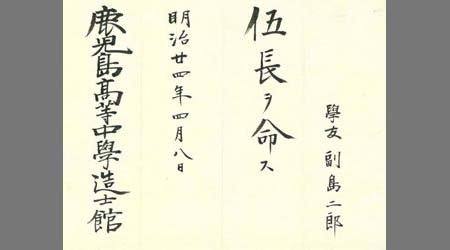 學友 副島二郎
伍長ヲ命ス
明治廿四年四月八日
鹿兒島髙等中學造士館